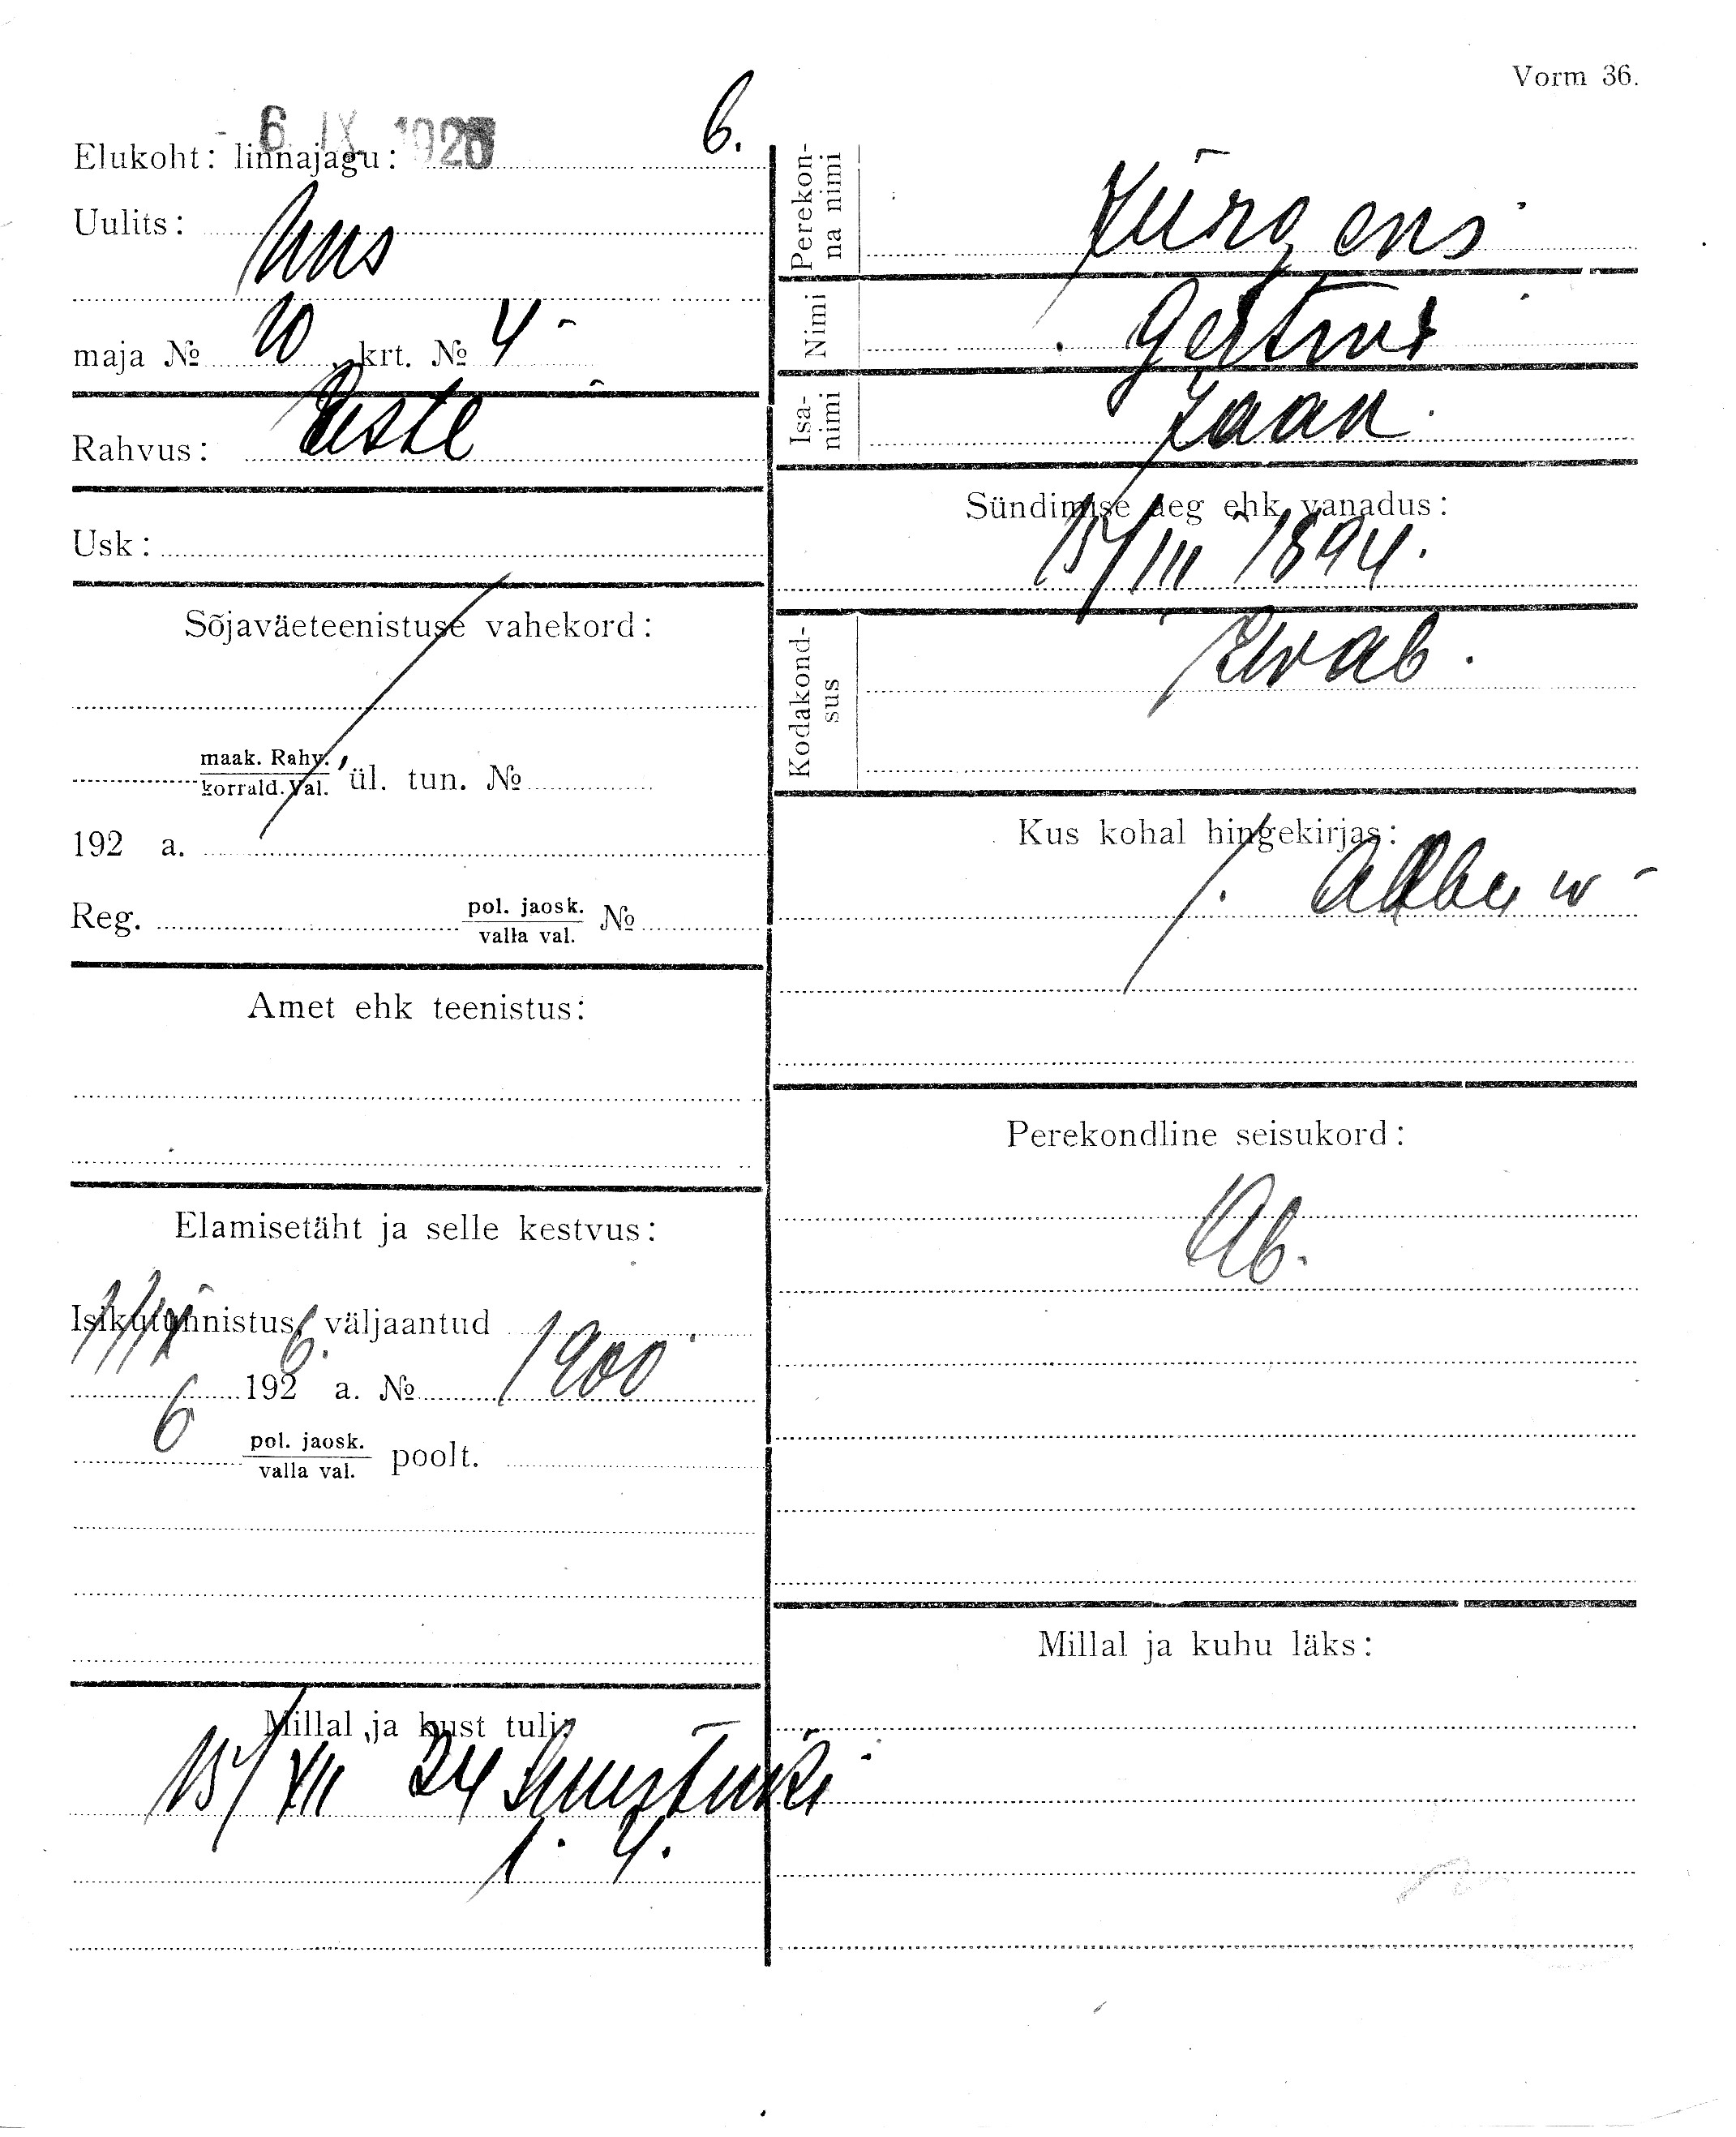 Vorm 36.
- 6. IX. 1926
6.
Elukoht: linnajagu:
Uulits: Uus
maja № 10 krt. № 4
Rahvus: Eesti
Usk:
Sõjaväeteenistuse vahekord:
maak. Rahv.
korrald. Val. ül. tun. №
192 a.
Reg. pol. jaosk. №
valla val.
Amet ehk teenistus:
Elamisetäht ja selle kestvus:
Isikutunnistus väljaantud
1/IX 6. 192 a. № 1900
6 pol. jaosk. poolt.
valla val.
Millal ja kust tuli:
15/XII 24
1. 4.
Perekon-
na nimi
Jürgens
Nimi
Isa-
nimi
Jaan
Sündimise aeg ehk vanadus:
15/III 1894.
Kodakond-
sus
Kus kohal hingekirjas:
Perekondline seisukord:
Ab.
Millal ja kuhu läks: